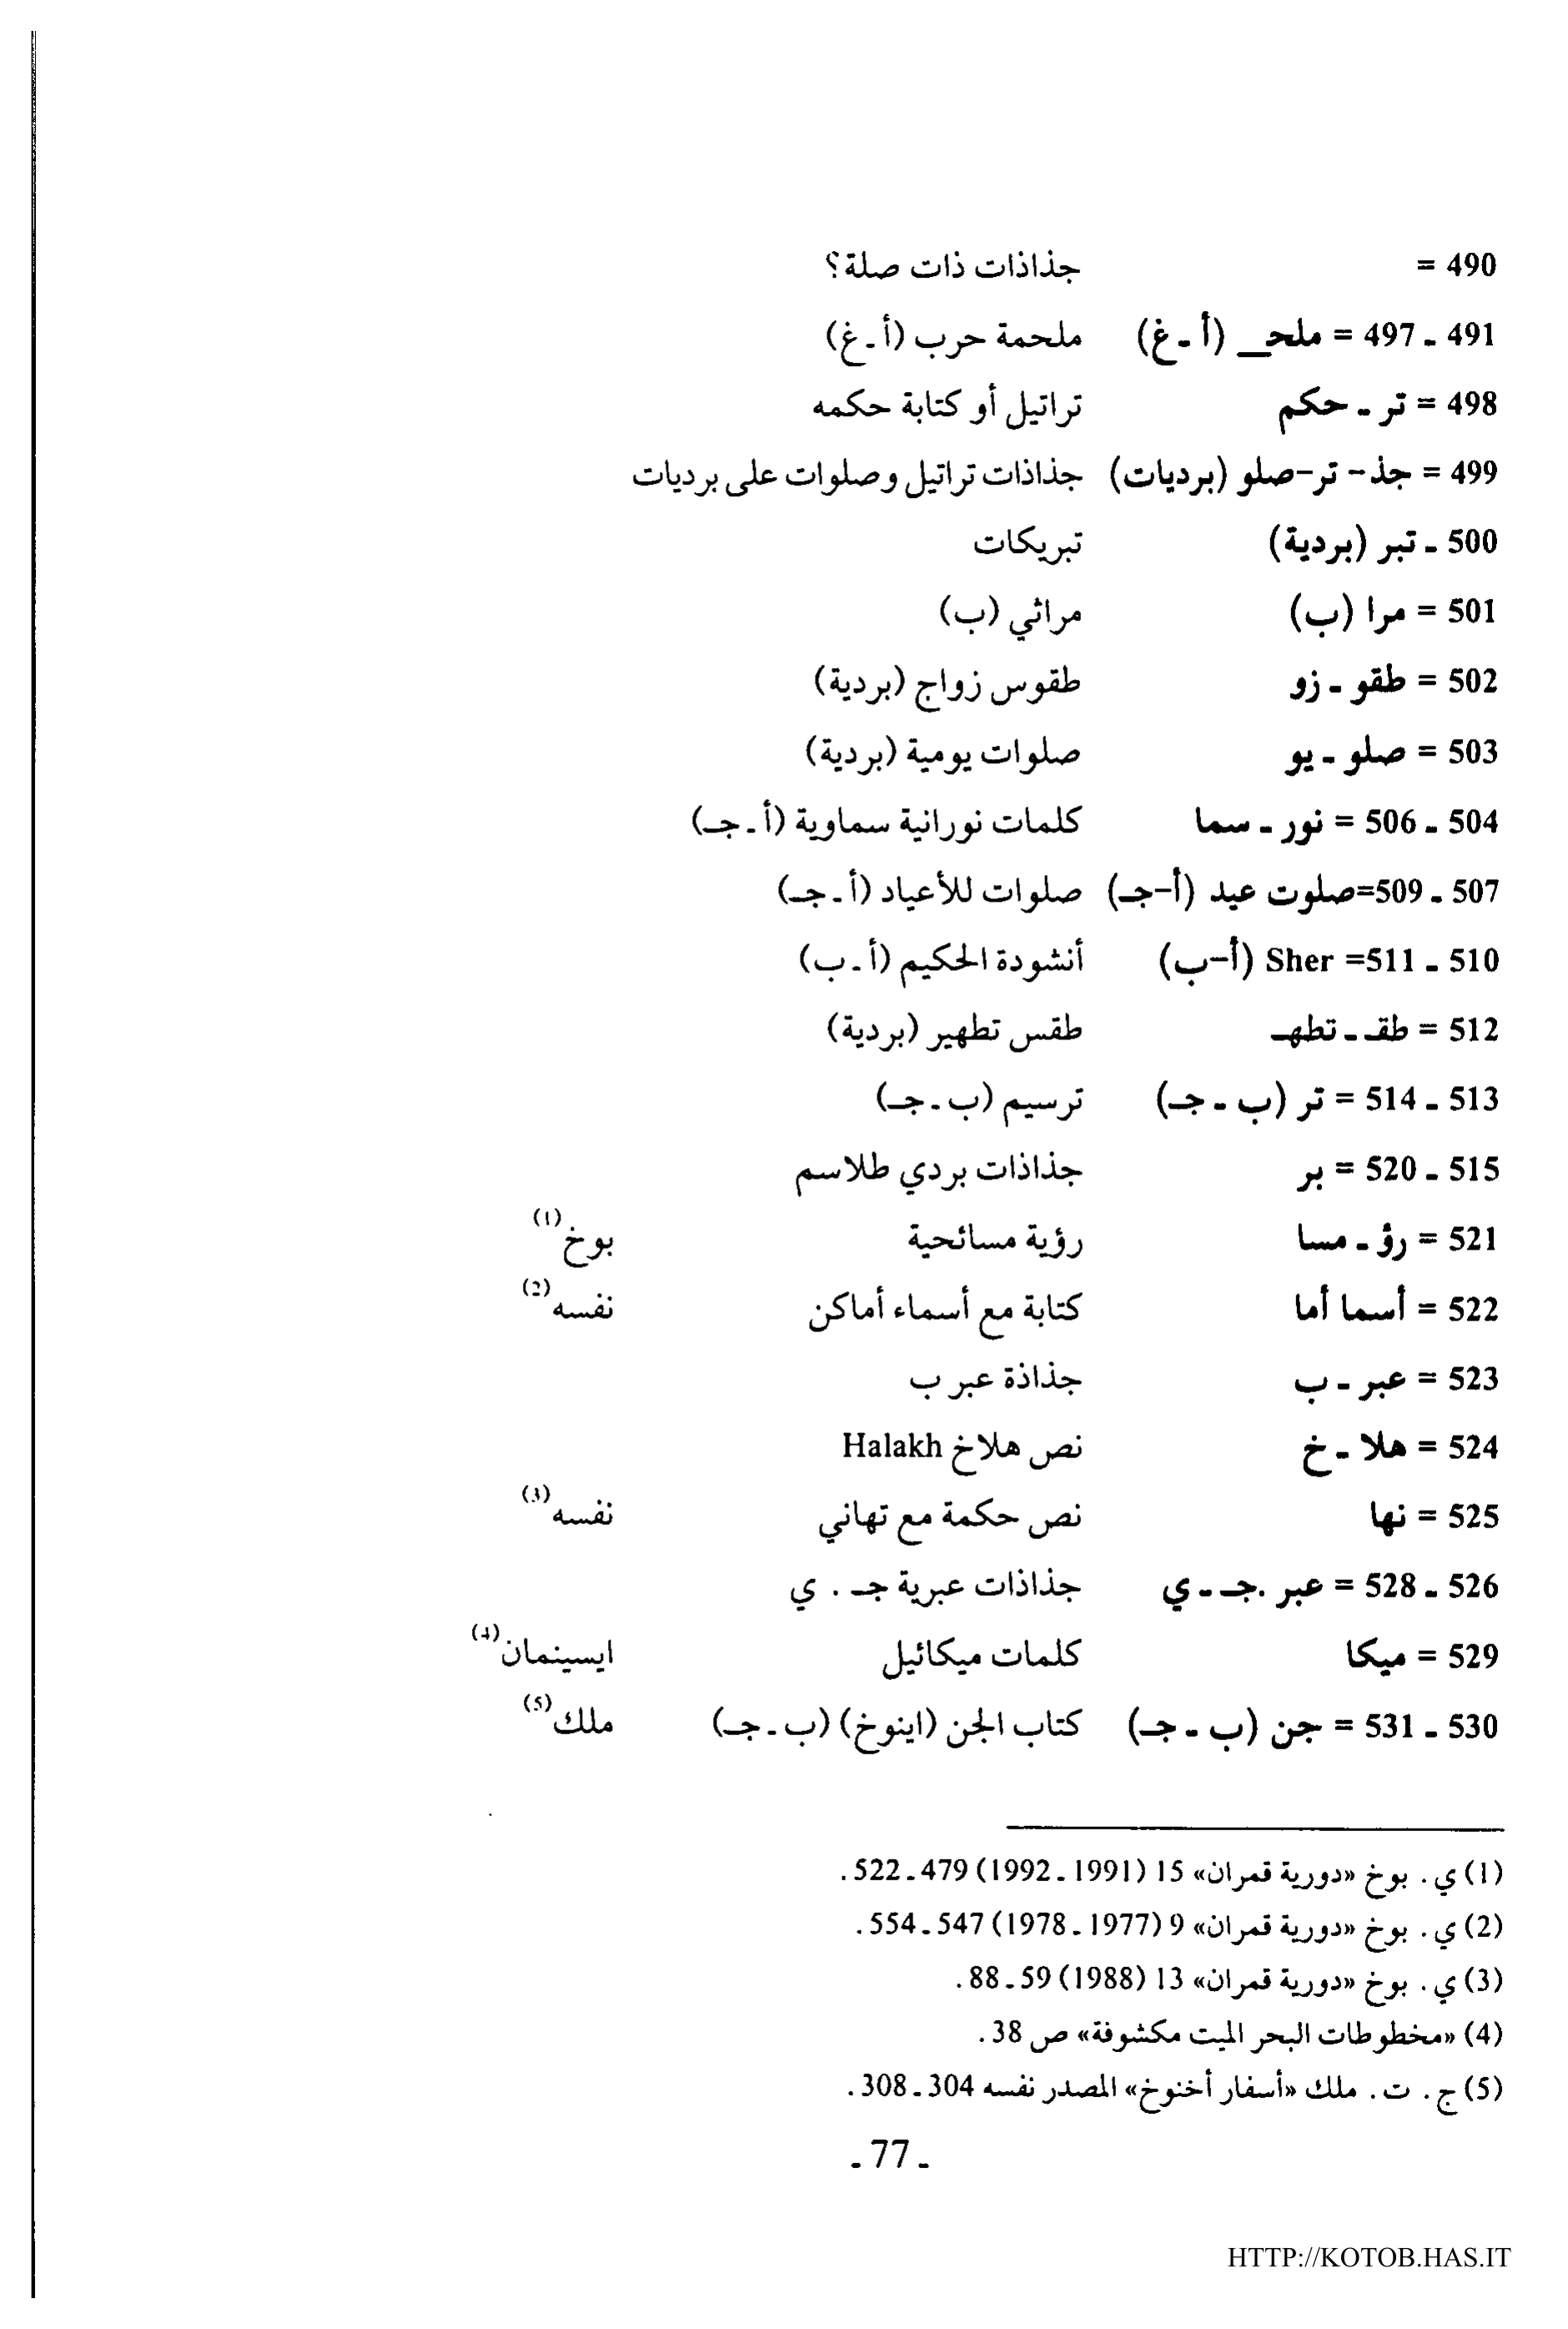 490 = جذاذات ذات صلة؟
491 ـ 497 = ملحـ (أ ـ غ) ملحمة حرب (أ ـ غ)
498 = تر ـ حكم تراتيل أو كتابة حكمه
499 = جذ- تر-صلو (برديات) جذاذات تراتيل وصلوات على برديات
500 ـ تبر (بردية) تبريكات
501 = مرا (ب) مراثي (ب)
502 = طقو ـ زو طقوس زواج (بردية)
503 = صلو ـ يو صلوات يومية (بردية)
504 ـ 506 = نور ـ سما كلمات نورانية سماوية (أ ـ جـ)
507 ـ 509=صلوت عيد (أ-جـ) صلوات للأعياد (أ ـ جـ)
510 ـ 511= Sher (أ-ب) أنشودة الحكيم (أ ـ ب)
512 = طقـ ـ تطهـ طقس تطهير (بردية)
513 ـ 514 = تر (ب ـ جـ) ترسيم (ب ـ جـ)
515 ـ 520 = بر جذاذات بردي طلاسم
521 = رؤ ـ مسا رؤية مسائحية بوخ(1)
522 = أسما أما كتابة مع أسماء أماكن نفسه(2)
523 = عبر ـ ب جذاذة عبر ب
524 = هلا ـ خ نص هلاخ Halakh
525 = نها نص حكمة مع تهاني نفسه(3)
526 ـ 528 = عبر .جـ ـ ي جذاذات عبرية جـ . ي
529 = ميكا كلمات ميكائيل ايسينمان(4)
530 ـ 531 = جن (ب ـ جـ) كتاب الجن (اينوخ) (ب ـ جـ) ملك(5)
(1) ي . بوخ «دورية قمران» 15 (1991 ـ 1992) 479 ـ 522 .
(2) ي . بوخ «دورية قمران» 9 (1977 ـ 1978) 547 ـ 554 .
(3) ي . بوخ «دورية قمران» 13 (1988) 59 ـ 88 .
(4) «مخطوطات البحر الميت مكشوفة» ص 38 .
(5) ج . ت . ملك «أسفار أخنوخ» المصدر نفسه 304 ـ 308 .
ـ 77 ـ
HTTP://KOTOB.HAS.IT